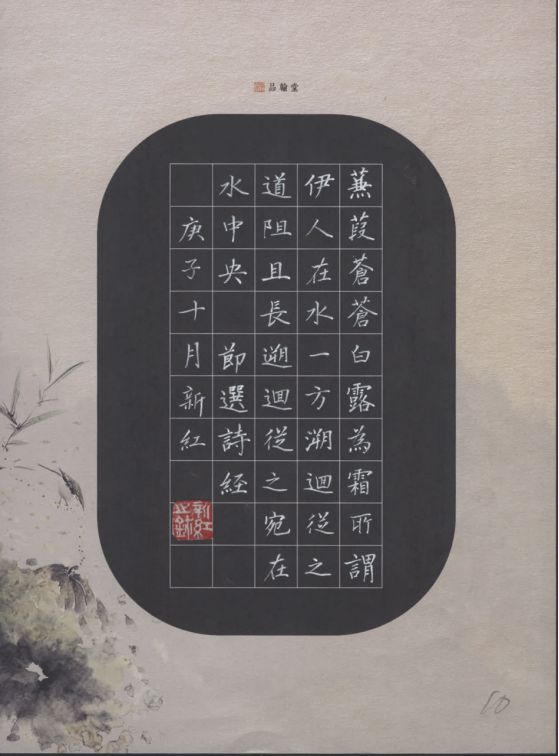 品翰堂
蒹葭蒼蒼白露為霜所謂
伊人在水一方溯迴從之
道阻且長遡迴從之宛在
水中央 節選詩経
庚子十月新紅
新紅之鉥
10